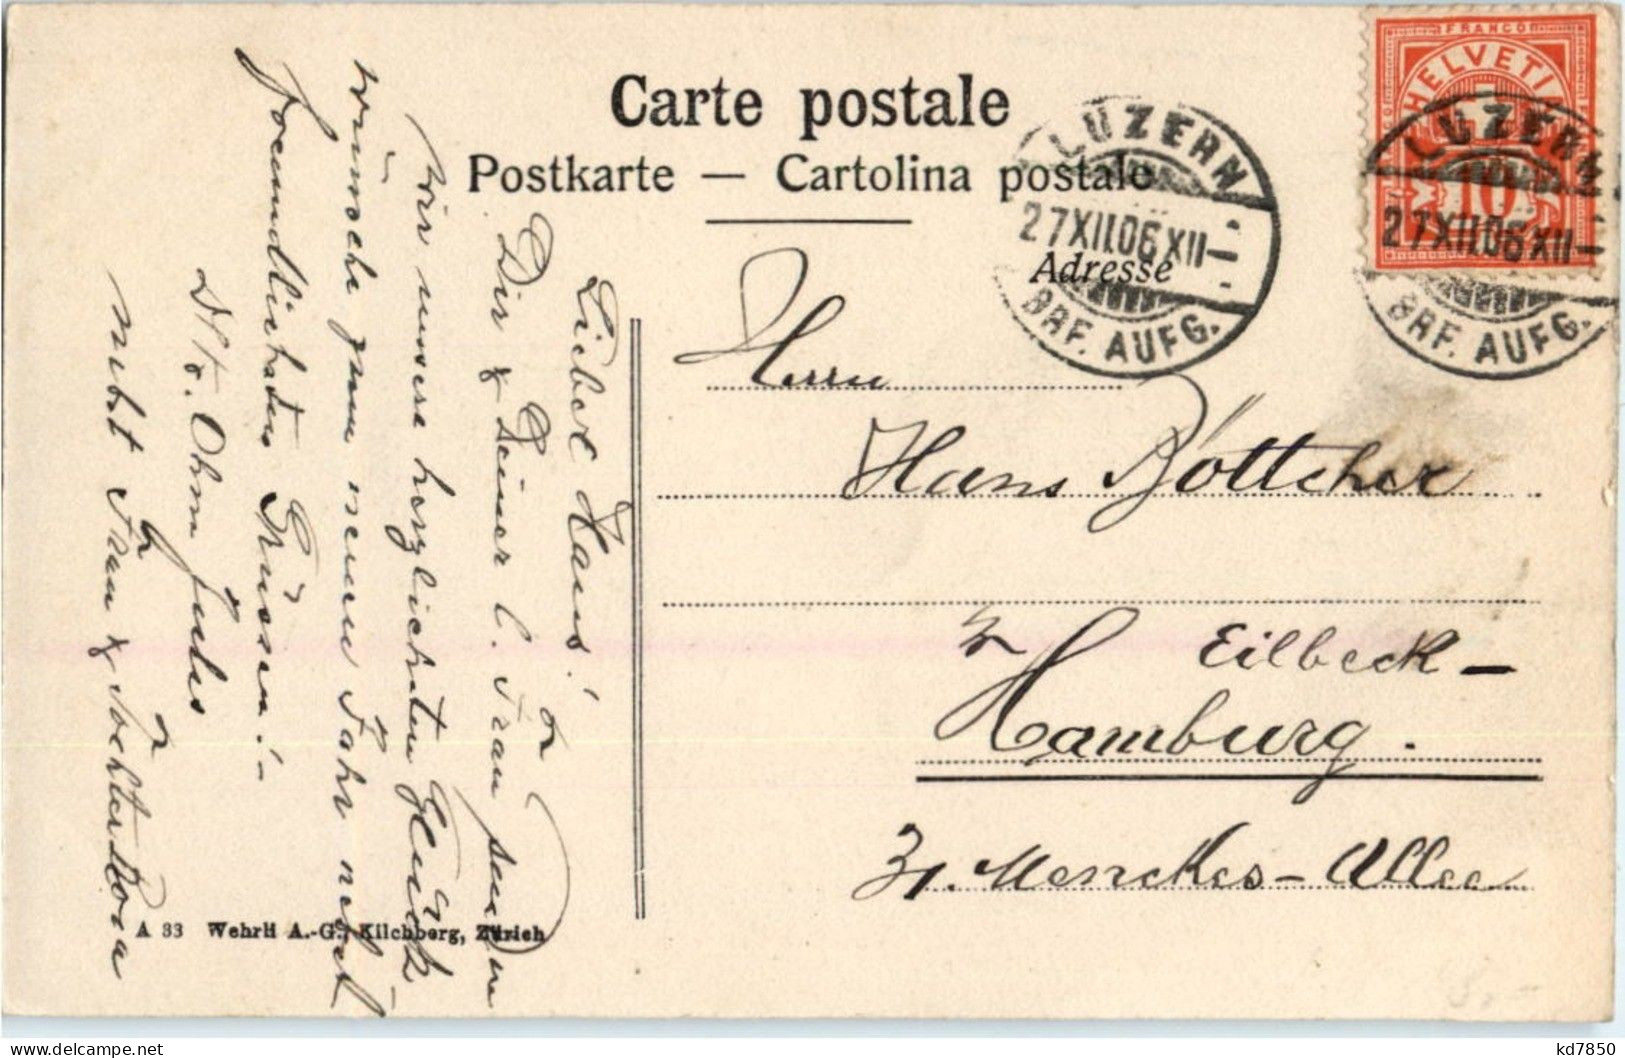 Carte postale
Postkarte — Cartolina postale
Adresse
FRANCO
HELVETI
10
LUZERN
27 XII.06 XII
BRF. AUFG.
LUZERN
27 XII.06 XII
BRF. AUFG.
Herrn
Hans Böttcher
Eilbeck-
Hamburg.
31. Menckes-Allee
Lieber Hans!
Dir & Deiner l. Frau senden
wir unsere herzlichsten Glück-
wünsche zum neuen Jahr nebst
freundlichsten Grüssen!-
Ohm Jules
nebst Frau & Tochter Dora
A 33 Wehrli A.-G., Kilchberg, Zürich
delcampe.net
kd7850